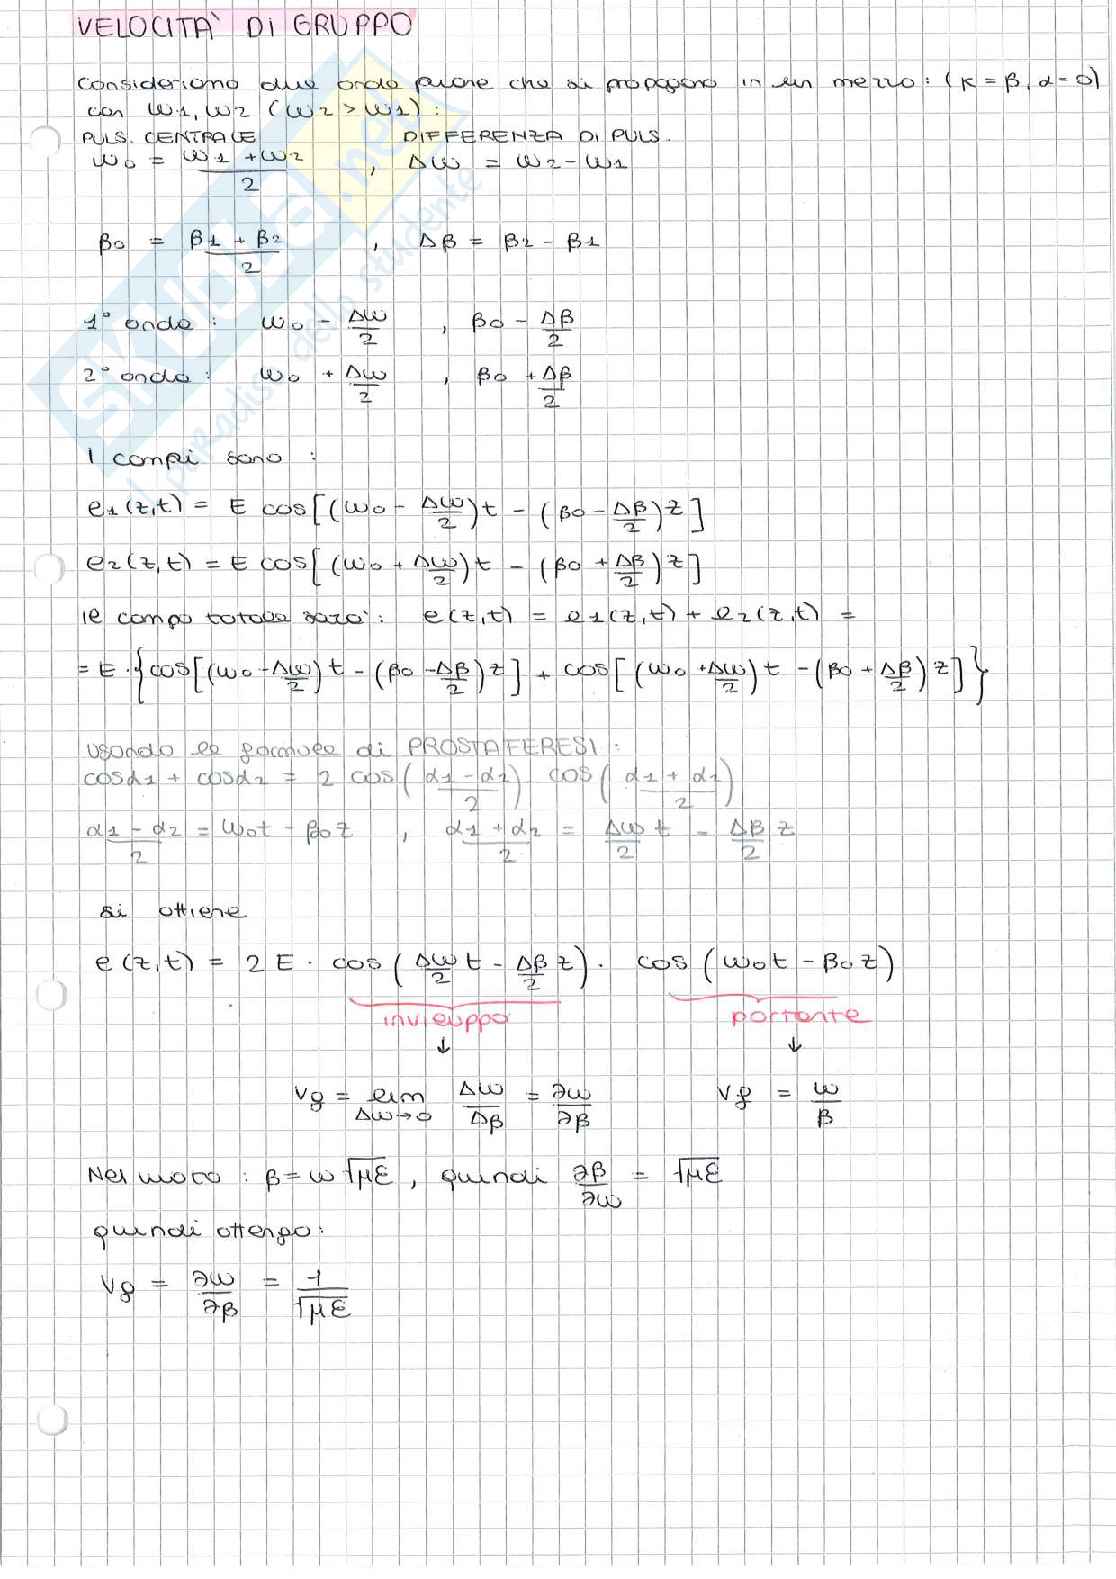 VELOCITA' DI GRUPPO
Consideriamo due onde piane che si propagano in un mezzo: (K = β, α = 0)
con ω1, ω2 (ω2 > ω1):
PULS. CENTRALE DIFFERENZA DI PULS.
ω0 = (ω1 + ω2)/2 , Δω = ω2 - ω1
β0 = (β1 + β2)/2 , Δβ = β2 - β1
1° onda: ω0 - Δω/2 , β0 - Δβ/2
2° onda: ω0 + Δω/2 , β0 + Δβ/2
I campi sono:
e1(z,t) = E cos[(ω0 - Δω/2)t - (β0 - Δβ/2)z]
e2(z,t) = E cos[(ω0 + Δω/2)t - (β0 + Δβ/2)z]
Il campo totale sarà: e(z,t) = e1(z,t) + e2(z,t) =
= E·{cos[(ω0 - Δω/2)t - (β0 - Δβ/2)z] + cos[(ω0 + Δω/2)t - (β0 + Δβ/2)z]}
usando le formule di PROSTAFERESI:
cosα1 + cosα2 = 2 cos((α1 - α2)/2) cos((α1 + α2)/2)
(α1 - α2)/2 = ω0t - β0z , (α1 + α2)/2 = Δω/2 t - Δβ/2 z
si ottiene
e(z,t) = 2E · cos(Δω/2 t - Δβ/2 z) · cos(ω0t - β0z)
inviluppo portante
↓ ↓
vg = lim Δω→0 Δω/Δβ = ∂ω/∂β vf = ω/β
Nel vuoto: β = ω√με , quindi ∂β/∂ω = √με
quindi ottengo:
vg = ∂ω/∂β = 1/√με
SKUOLA.net
il paradiso dello studente